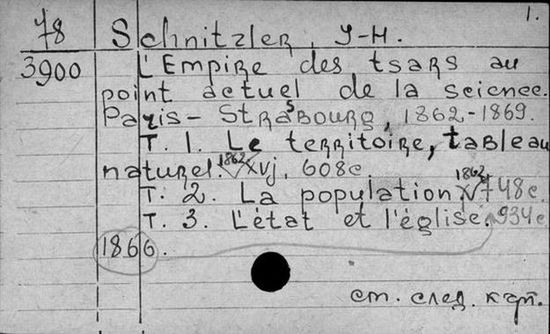 1.
78 Schnitzler, J-H.
3900 L'Empire des tsars au
point actuel de la science.
Paris - Strasbourg, 1862-1869.
T. 1. Le territoire, tableau
naturel. 1862 xvj, 608c.
T. 2. La population 1862 748c.
T. 3. L'état et l'église. 934c.
1866.
ст. след. карт.